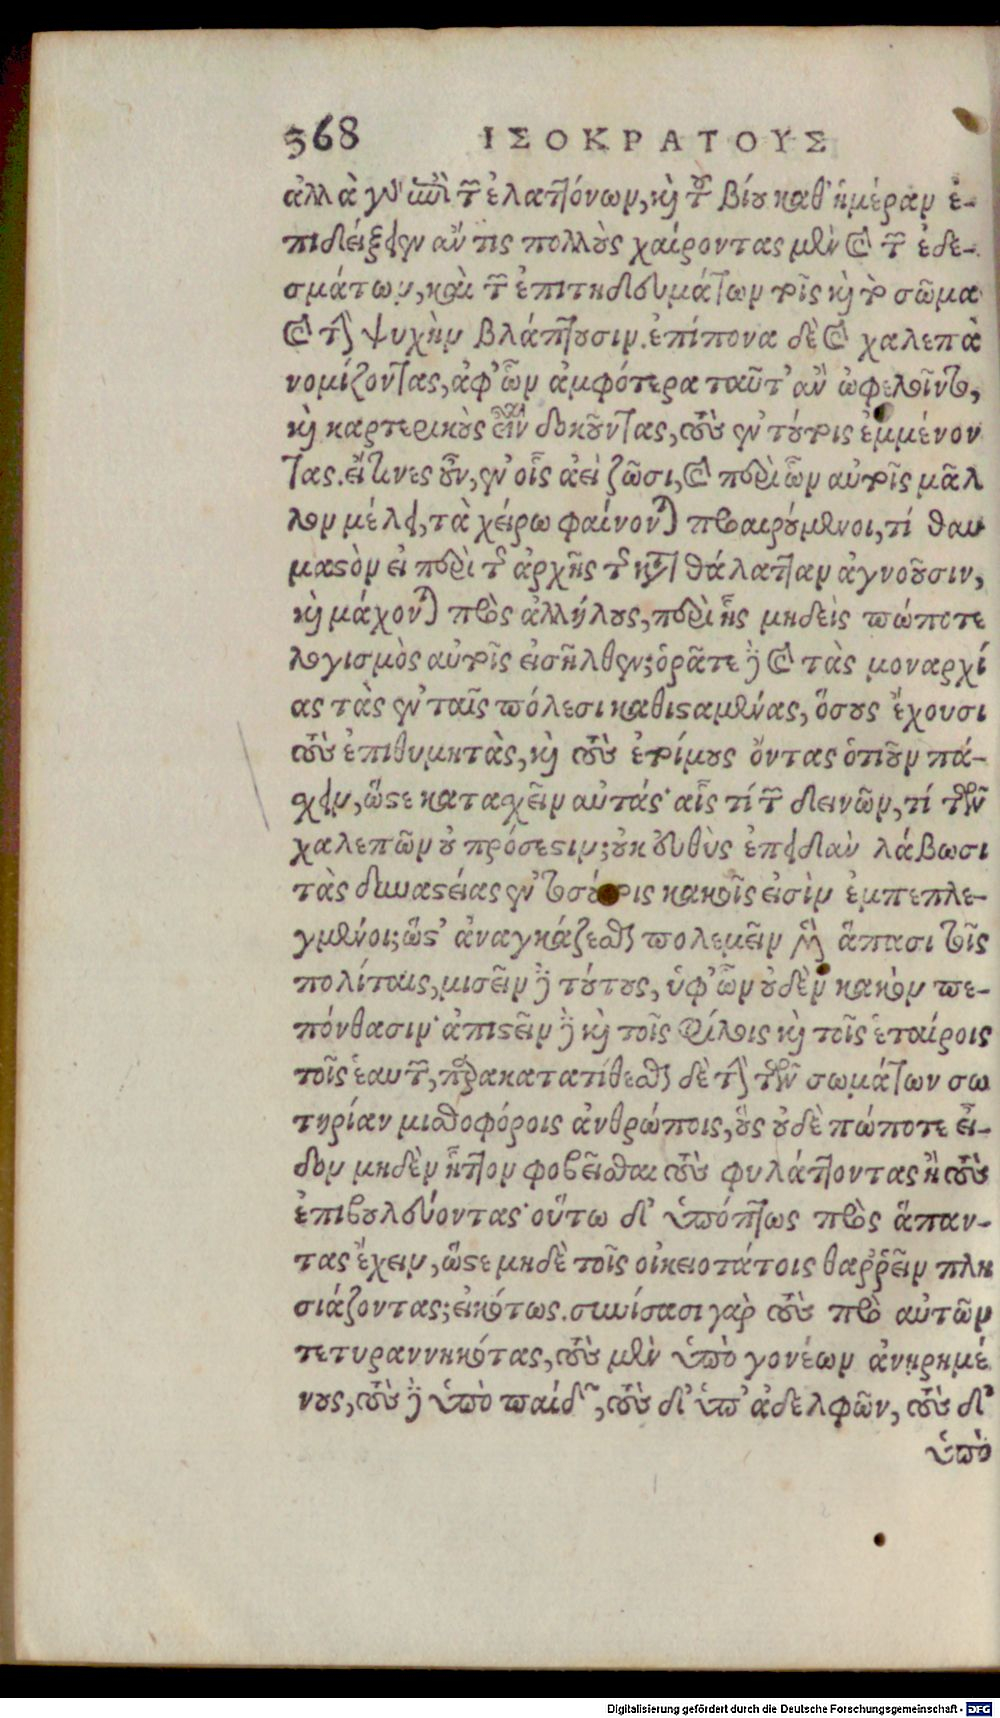 368 ΙΣΟΚΡΑΤΟΥΣ
ἀλλὰ κἀν ἐπὶ τῶν ἐλαττόνων, καὶ τοῦ βίου καθ' ἡμέραν ἐ-
πιδείξειεν ἄν τις πολλοὺς χαίροντας μὲν καὶ τῶν ἐδε-
σμάτων, καὶ τῶν ἐπιτηδευμάτων τοῖς καὶ τὸ σῶμα
καὶ τὴν ψυχὴν βλάπτουσιν. ἐπίπονα δὲ καὶ χαλεπὰ
νομίζοντας, ἀφ' ὧν ἀμφότερα ταῦτ' ἂν ὠφελοῖντο,
καὶ καρτερικοὺς εἶναι δοκοῦντας, τοὺς ἐν τούτοις ἐμμένον
τας. οἵτινες οὖν, ἐν οἷς ἀεὶ ζῶσι, καὶ περὶ ὧν αὐτοῖς μᾶλ
λον μέλει, τὰ χείρω φαίνονται προαιρούμενοι, τί θαυ
μαστὸν εἰ περὶ τῆς ἀρχῆς τῆς κατὰ θάλατταν ἀγνοοῦσιν,
καὶ μάχονται πρὸς ἀλλήλους, περὶ ἧς μηδεὶς πώποτε
λογισμὸς αὐτοῖς εἰσῆλθεν; ὁρᾶτε δὲ καὶ τὰς μοναρχί
ας τὰς ἐν ταῖς πόλεσι καθισταμένας, ὅσους ἔχουσι
τοὺς ἐπιθυμητὰς, καὶ τοὺς ἑτοίμους ὄντας ὁτιοῦν πά-
σχειν, ὥστε κατασχεῖν αὐτάς· αἷς τί τῶν δεινῶν, τί τῶν
χαλεπῶν οὐ πρόσεστιν; οὐκ εὐθὺς ἐπειδὰν λάβωσι
τὰς δυναστείας ἐν τοσούτοις κακοῖς εἰσὶν ἐμπεπλε-
γμένοι; ὥστ' ἀναγκάζεσθαι πολεμεῖν μὲν ἅπασι τοῖς
πολίταις, μισεῖν δὲ τούτους, ὑφ' ὧν οὐδὲν κακὸν πε-
πόνθασιν· ἀπιστεῖν δὲ καὶ τοῖς φίλοις καὶ τοῖς ἑταίροις
τοῖς ἑαυτῶν, παρακατατίθεσθαι δὲ τὴν τῶν σωμάτων σω
τηρίαν μισθοφόροις ἀνθρώποις, οὓς οὐδὲ πώποτε εἶ-
δον μηδὲν ἧττον φοβεῖσθαι τοὺς φυλάττοντας ἢ τοὺς
ἐπιβουλεύοντας· οὕτω δ' ὑπόπτως πρὸς ἅπαν-
τας ἔχειν, ὥστε μηδὲ τοῖς οἰκειοτάτοις θαρῤεῖν πλη
σιάζοντας; εἰκότως. συνίσασι γὰρ τοὺς πρὸ αὐτῶν
τετυραννηκότας, τοὺς μὲν ὑπὸ γονέων ἀνῃρημέ
νους, τοὺς δὲ ὑπὸ παίδων, τοὺς δ' ὑπ' ἀδελφῶν, τοὺς δ'
ὑπὸ
Digitalisierung gefördert durch die Deutsche Forschungsgemeinschaft - DFG